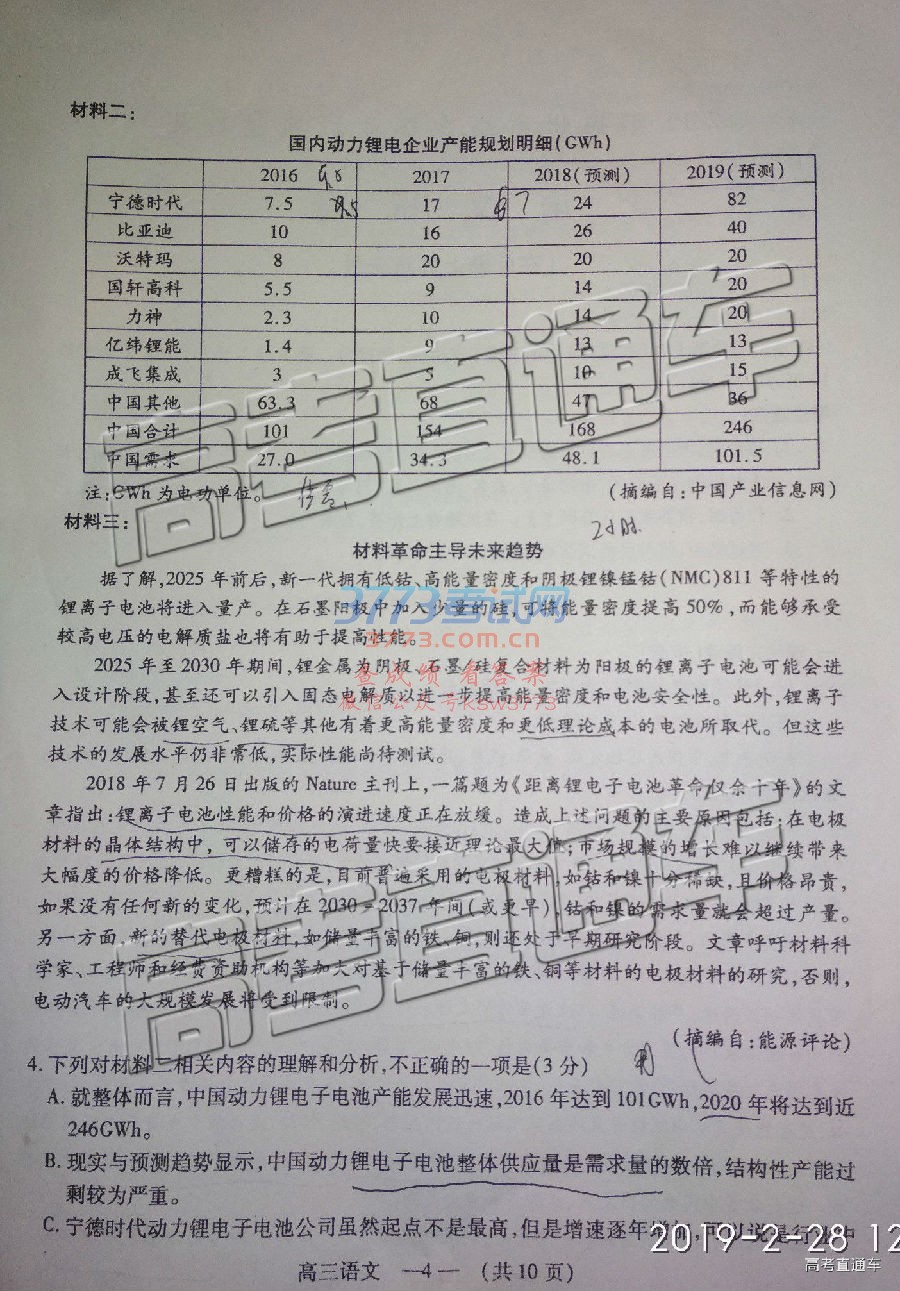 材料二：
国内动力锂电企业产能规划明细(GWh)
2016 2017 2018(预测) 2019(预测)
宁德时代 7.5 17 24 82
比亚迪 10 16 26 40
沃特玛 8 20 20 20
国轩高科 5.5 9 14 20
力神 2.3 10 14 20
亿纬锂能 1.4 9 13 13
成飞集成 3 5 10 15
中国其他 63.3 68 47 36
中国合计 101 154 168 246
中国需求 27.0 34.3 48.1 101.5
注：GWh 为电功单位。 (摘编自：中国产业信息网)
材料三：
材料革命主导未来趋势
据了解，2025 年前后，新一代拥有低钴、高能量密度和阴极锂镍锰钴(NMC)811 等特性的
锂离子电池将进入量产。在石墨阳极中加入少量的硅，可将能量密度提高 50%，而能够承受
较高电压的电解质盐也将有助于提高性能。
2025 年至 2030 年期间，锂金属为阴极、石墨/硅复合材料为阳极的锂离子电池可能会进
入设计阶段，甚至还可以引入固态电解质以进一步提高能量密度和电池安全性。此外，锂离子
技术可能会被锂空气、锂硫等其他有着更高能量密度和更低理论成本的电池所取代。但这些
技术的发展水平仍非常低，实际性能尚待测试。
2018 年 7 月 26 日出版的 Nature 主刊上，一篇题为《距离锂电子电池革命仅余十年》的文
章指出：锂离子电池性能和价格的演进速度正在放缓。造成上述问题的主要原因包括：在电极
材料的晶体结构中，可以储存的电荷量快要接近理论最大值；市场规模的增长难以继续带来
大幅度的价格降低。更糟糕的是，目前普遍采用的电极材料，如钴和镍十分稀缺，且价格昂贵，
如果没有任何新的变化，预计在 2030－2037 年间(或更早)，钴和镍的需求量就会超过产量。
另一方面，新的替代电极材料，如储量丰富的铁、铜，则还处于早期研究阶段。文章呼吁材料科
学家、工程师和经费资助机构等加大对基于储量丰富的铁、铜等材料的电极材料的研究，否则，
电动汽车的大规模发展将受到限制。
(摘编自：能源评论)
4. 下列对材料二相关内容的理解和分析，不正确的一项是(3 分)
A. 就整体而言，中国动力锂电子电池产能发展迅速，2016 年达到 101GWh，2020 年将达到近
246GWh。
B. 现实与预测趋势显示，中国动力锂电子电池整体供应量是需求量的数倍，结构性产能过
剩较为严重。
C. 宁德时代动力锂电子电池公司虽然起点不是最高，但是增速逐年增加，可以说是行业中
高三语文 —4— (共 10 页)
高考直通车
高考直通车
3773考试网
3773.com.cn
查成绩 看答案
微信公众号KSW3773
2019-2-28 12
高考直通车